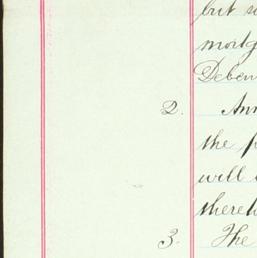 but
mortg
Deben
2. Ann
the p
will
theret
3. The